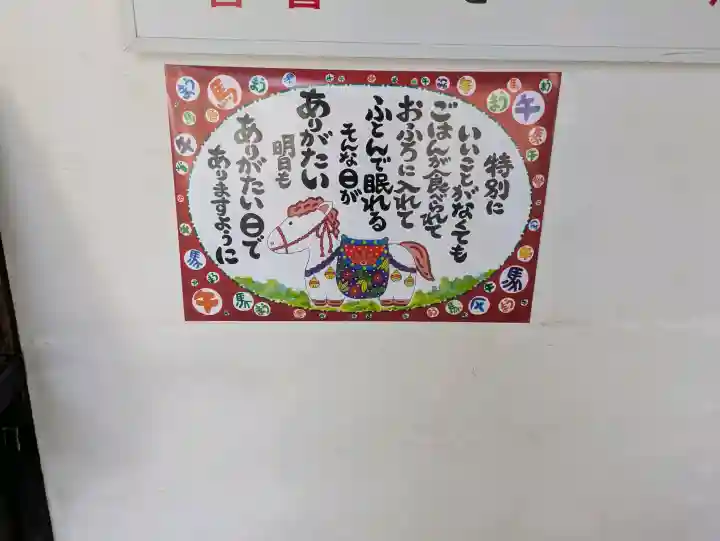 特別に
いいことがなくても
ごはんが食べられて
おふろに入れて
ふとんで眠れる
そんな日が
ありがたい
明日も
ありがたい日で
ありますように